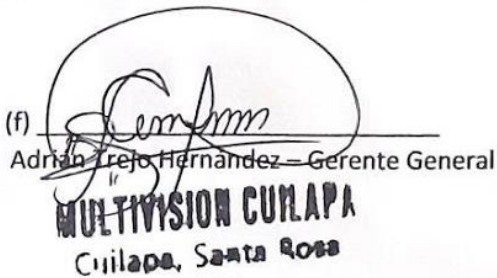 (f)
Adrián Trejo Hernández – Gerente General
MULTIVISION CUILAPA
Cuilapa, Santa Rosa